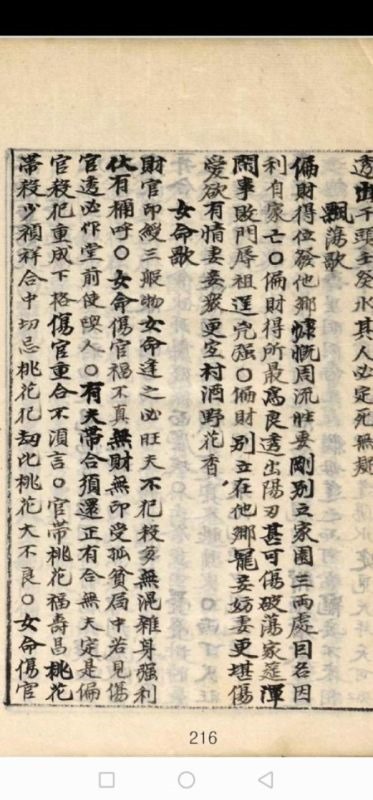 透出干頭壬癸水其人必定死無疑
飄蕩歌
偏財得位發他鄉慷慨周流性要剛別立家園三兩處因名因
利自家亡〇偏財得所最為良透出陽刃甚可傷破蕩家筵渾
閒事敗門辱祖逞兇强〇偏財別立在他鄉寵妾妨妻更堪傷
愛欲有情妻妾衆更宜村酒野花香
女命歌
財官印綬三般物女命逢之必旺夫不犯殺多無混雜身强利
伏有稱呼〇女命傷官福不真無財無印受孤貧局中若見傷
官透必作堂前使喫人〇有夫帶合須還正有合無夫定是偏
官殺犯重成下格傷官重合不須言〇官帶桃花福壽昌桃花
帶殺少禎祥合中切忌桃花犯劫比桃花大不良〇女命傷官
216